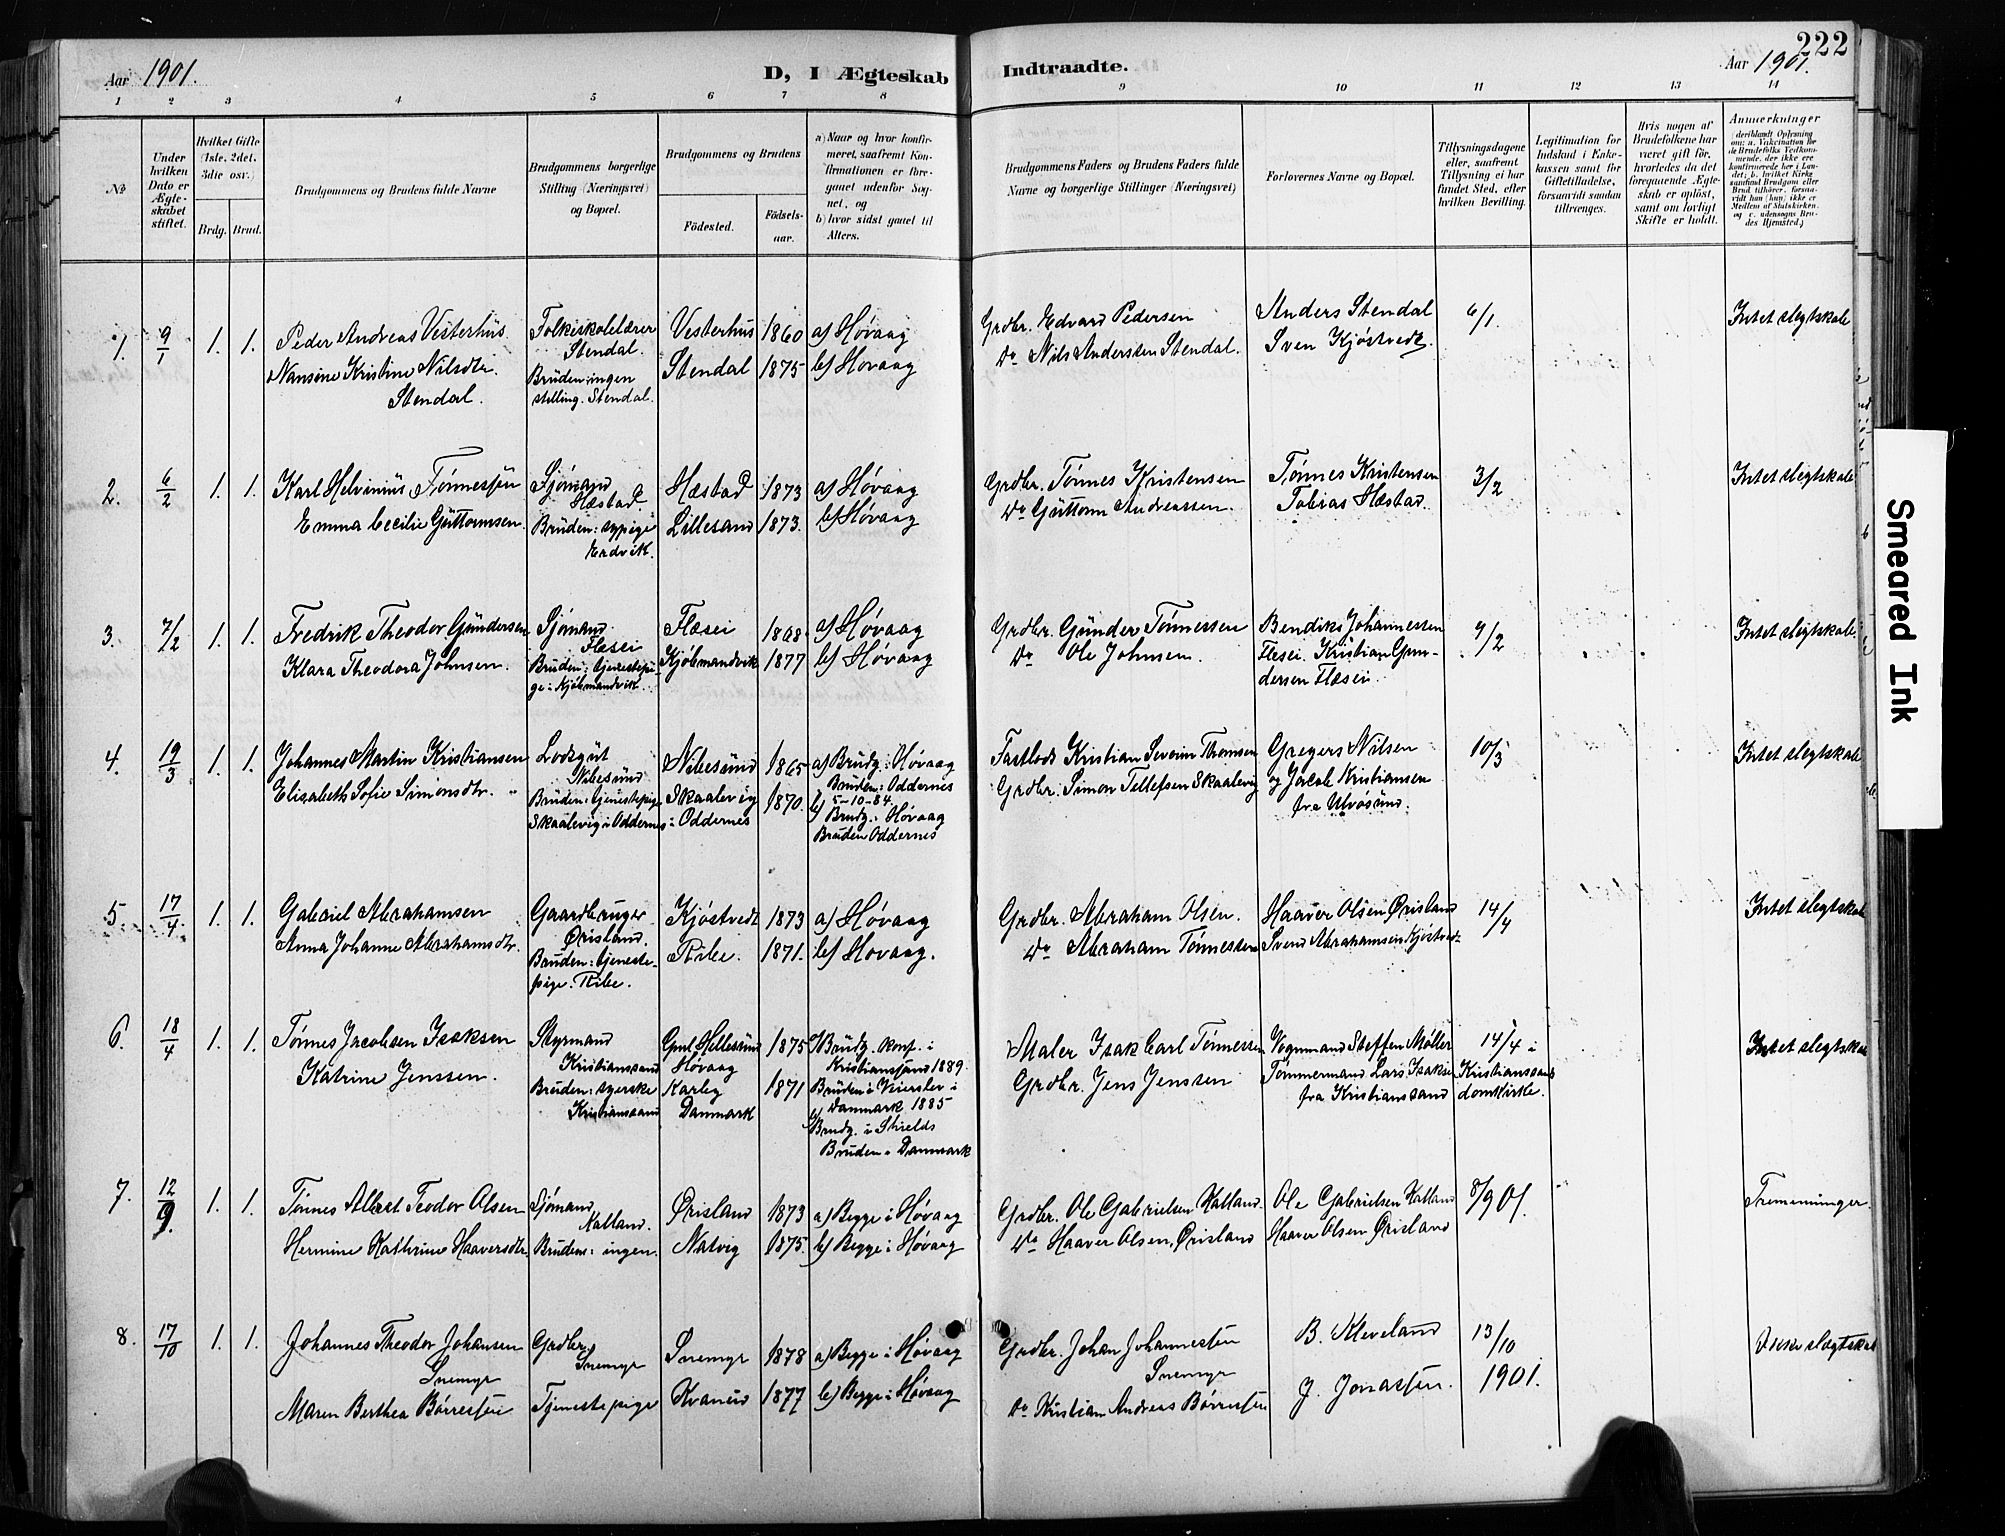 222
Aar 1901.
D, I Ægteskab Indtraadte.
Aar 1901.
1 2 3 4 5 6 7 8 9 10 11 12 13 14
No
Under hvilken Dato er Ægteskabet stiftet.
Hvilket Gifte (1ste, 2det, 3die osv.)
Brdg. Brud.
Brudgommens og Brudens fulde Navne
Brudgommens borgerlige Stilling (Næringsvei) og Bopæl.
Brudgommens og Brudens
Födested.
Födselsaar.
a) Naar og hvor konfirmeret, saafremt Konfirmationen er foregaaet udenfor Sognet, og
b) hvor sidst gaaet til Alters.
Brudgommens Faders og Brudens Faders fulde Navne og borgerlige Stillinger (Næringsvei)
Forlovernes Navne og Bopæl.
Tillysningsdagene eller, saafremt Tillysning ei har fundet Sted, efter hvilken Bevilling.
Legitimation for Indskud i Enkekassen samt for Giftetilladelse, forsaavidt saadan tiltrænges.
Hvis nogen af Brudefolkene har været gift för, hvorledes da det foregaaende Ægteskab er oplöst, samt om lovligt Skifte er holdt.
Anmerkninger
(deriblandt Oplysning om: a. Vakcination for de Brudefolks Vedkommende, der ikke ere konfirmerede her i Landet; b. hvilket Kirkesamfund Brudgom eller Brud tilhører, forsaavidt han (hun) ikke er Medlem af Statskirken, og c. udensogns Brudes Hjemsted.)
1. 9/1 1. 1.
Peder Andreas Vesterhus.
Nansine Kristine Nilsdtr. Stendal.
Folkeskolelærer Stendal.
Bruden: ingen stilling. Stendal.
Vesterhus 1860 a) Høvaag
Stendal 1875 b) Høvaag
Grdbr. Edvard Pedersen
Do Nils Andersten Stendal.
Anders Stendal
Sven Kjøstvedt.
6/1.
Intet slegtskab
2. 6/2 1. 1.
Karl Helvinius Tønnessen
Emma Cecilie Guttormsen.
Sjømand Hæstad.
Bruden: sypige
Hæstad 1873 a) Høvaag
Lillesand 1873. b) Høvaag
Grdbr. Tønnes Kristensen
Do Guttorm Andreassen.
Tønnes Kristensen
Tobias Hæstad.
3/2
Intet slegtskab
3. 7/2 1. 1.
Fredrik Theodor Gundersen
Klara Theodora Johnsen.
Sjømand Flæsei
Bruden: tjenestepige: Kjøbmandvik.
Flæsei 1868 a) Høvaag
Kjøbmandvik 1877 b) Høvaag
Grdbr. Gunder Tønnessen
Do Ole Johnsen.
Bendiks Johannessen
Flesei. Kristian Gundersen Flæsei.
Intet slegtskab.
4. 19/3 1. 1.
Johannes Martin Kristiansen
Elisabeth Sofie Simonsdtr.
Lodsgut Nibesund
Bruden: tjenestepig
Skaalevig i Oddernes
Nibesund 1865
Skaalevig i Oddernes 1870.
a) Brudg: Høvaag
Bruden: Oddernes 5-10-84.
b) Brudg.: Høvaag
Bruden Oddernes
Fastlods Kristian Severin Thomsen
Grdbr. Simon Tellefsen Skaalevig
Gregers Nilsen
og Jacob Kristiansen
fra Ulvøsund.
10/3
Intet slegtskab
5 17/4 1. 1.
Gabriel Abrahamsen
Anna Johanne Abrahamsdtr.
Gaardbruger Ørisland.
Bruden: tjenestepige. Ribe.
Kjøstvedt 1873 a) Høvaag
Ribe. 1871. b) Høvaag.
Grdbr. Abraham Olsen.
Do Abraham Tønnessen
Haaver Olsen Ørisland
Svend Abrahamsen Kjøstvedt
14/4
Intet slegtskab
6. 18/4 1. 1.
Tønnes Jacobsen Isaksen
Katrine Jenssen.
Styrmand Kristianssand
Bruden: syerske Kristianssand
Gml Hellesund Høvaag 1875
Karby Danmark 1871
a) Brudg. konf. i Kristianssand 1889.
Bruden i Veierslev i Danmark 1885
b) Brudg. i Shields
Bruden i Danmark
Maler Isak Carl Tønnessen
Grdbr. Jens Jenssen
Vognmand Steffen Møller
Tømmermand Lars Isaksen
fra Kristianssand
14/4 i Kristianssands domkirke.
Intet slegtskab
7. 12/9. 1. 1.
Tønnes Albert Teodor Olsen
Hermine Kathrine Haaversdtr.
Sjømand, Natland.
Bruden: ingen.
Ørisland 1873 a) Begge i Høvaag
Natvig 1875. b) Begge i Høvaag
Grdbr. Ole Gabrielsen Natland.
Do Haaver Olsen, Ørisland
Ole Gabrielsen Natland
Haaver Olsen Ørisland
8/9 01.
Tremenninger
8. 17/10 1. 1.
Johannes Theodor Johansen Snemyr
Maren Berthea Børressen
Grdbr. Snemyr
Tjenestepige
Snemyr 1878 a) Begge i Høvaag
1877 b) Begge i Høvaag
Grdbr. Johan Johannessen Snemyr
Do Kristian Andreas Børressen
B. Kleveland
J. Jonassen.
13/10 1901.
slægtskab
Smeared Ink